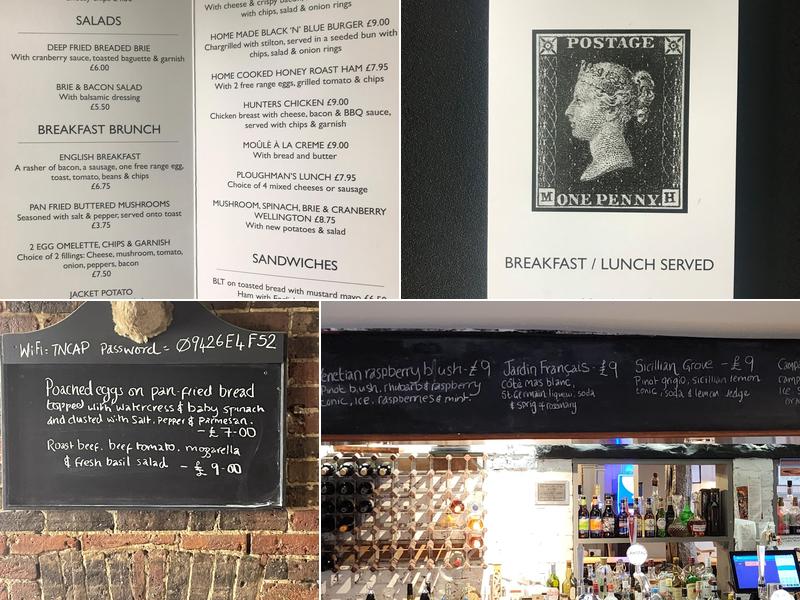 SALADS
DEEP FRIED BREADED BRIE
With cranberry sauce, toasted baguette & garnish
£6.00
BRIE & BACON SALAD
With balsamic dressing
£5.50
BREAKFAST BRUNCH
ENGLISH BREAKFAST
A rasher of bacon, a sausage, one free range egg,
toast, tomato, beans & chips
£6.75
PAN FRIED BUTTERED MUSHROOMS
Seasoned with salt & pepper, served onto toast
£3.75
2 EGG OMELETTE, CHIPS & GARNISH
Choice of 2 fillings: Cheese, mushroom, tomato,
onion, peppers, bacon
£7.50
JACKET POTATO
With cheese & crispy
with chips, salad & onion rings
HOME MADE BLACK 'N' BLUE BURGER £9.00
Chargrilled with stilton, served in a seeded bun with
chips, salad & onion rings
HOME COOKED HONEY ROAST HAM £7.95
With 2 free range eggs, grilled tomato & chips
HUNTERS CHICKEN £9.00
Chicken breast with cheese, bacon & BBQ sauce,
served with chips & garnish
MOÛLÈ À LA CREME £9.00
With bread and butter
PLOUGHMAN'S LUNCH £7.95
Choice of 4 mixed cheeses or sausage
MUSHROOM, SPINACH, BRIE & CRANBERRY
WELLINGTON £8.75
With new potatoes & salad
SANDWICHES
BLT on toasted bread with mustard mayo £6.50
Ham with
POSTAGE
M ONE PENNY. H
BREAKFAST / LUNCH SERVED
WiFi: TNCAP Password = Ø9426E4F52
Poached eggs on pan-fried bread
topped with watercress & baby spinach
and dusted with Salt, Pepper & Parmesan.
- £7.00
Roast beef, beef tomato, mozarella
& fresh basil salad - £9.00
enetian raspberry blush - £9
Pinot blush, rhubarb & raspberry
tonic, ice, raspberries & mint.
Jardin Français - £9
Côté mas blanc,
St Germain liqueur, soda
& sprig of rosemary
Sicillian Grove - £9
Pinot grigio, sicillian lemon
tonic, soda & lemon wedge
Camp
ice s